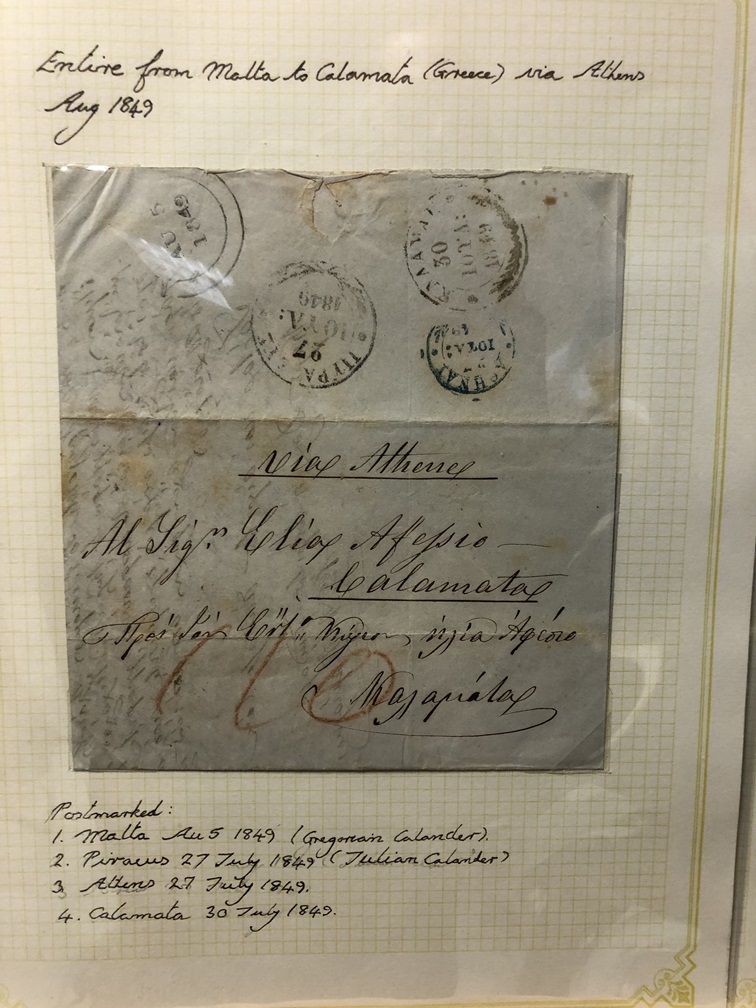 Entire from Malta to Calamata (Greece) via Athens
Aug 1849
AU 5
1849
ΚΑΛΑΜΑΙ
30
ΙΟΥΛ:
1849
ΠΕΙΡΑΙΕΥΣ
27
ΙΟΥΛ:
1849
ΑΘΗΝΑΙ
ΙΟΥΛ:
49
via Athene
Al Sigrn Elia Afessio
Calamata
Πρός τόν Κύριον ἠλία Ἀφέσιο
Καλαμάτα
Postmarked:
1. Malta Au 5 1849 (Gregorian Calander).
2. Piraeus 27 July 1849 (Julian Calander)
3 Athens 27 July 1849.
4. Calamata 30 July 1849.